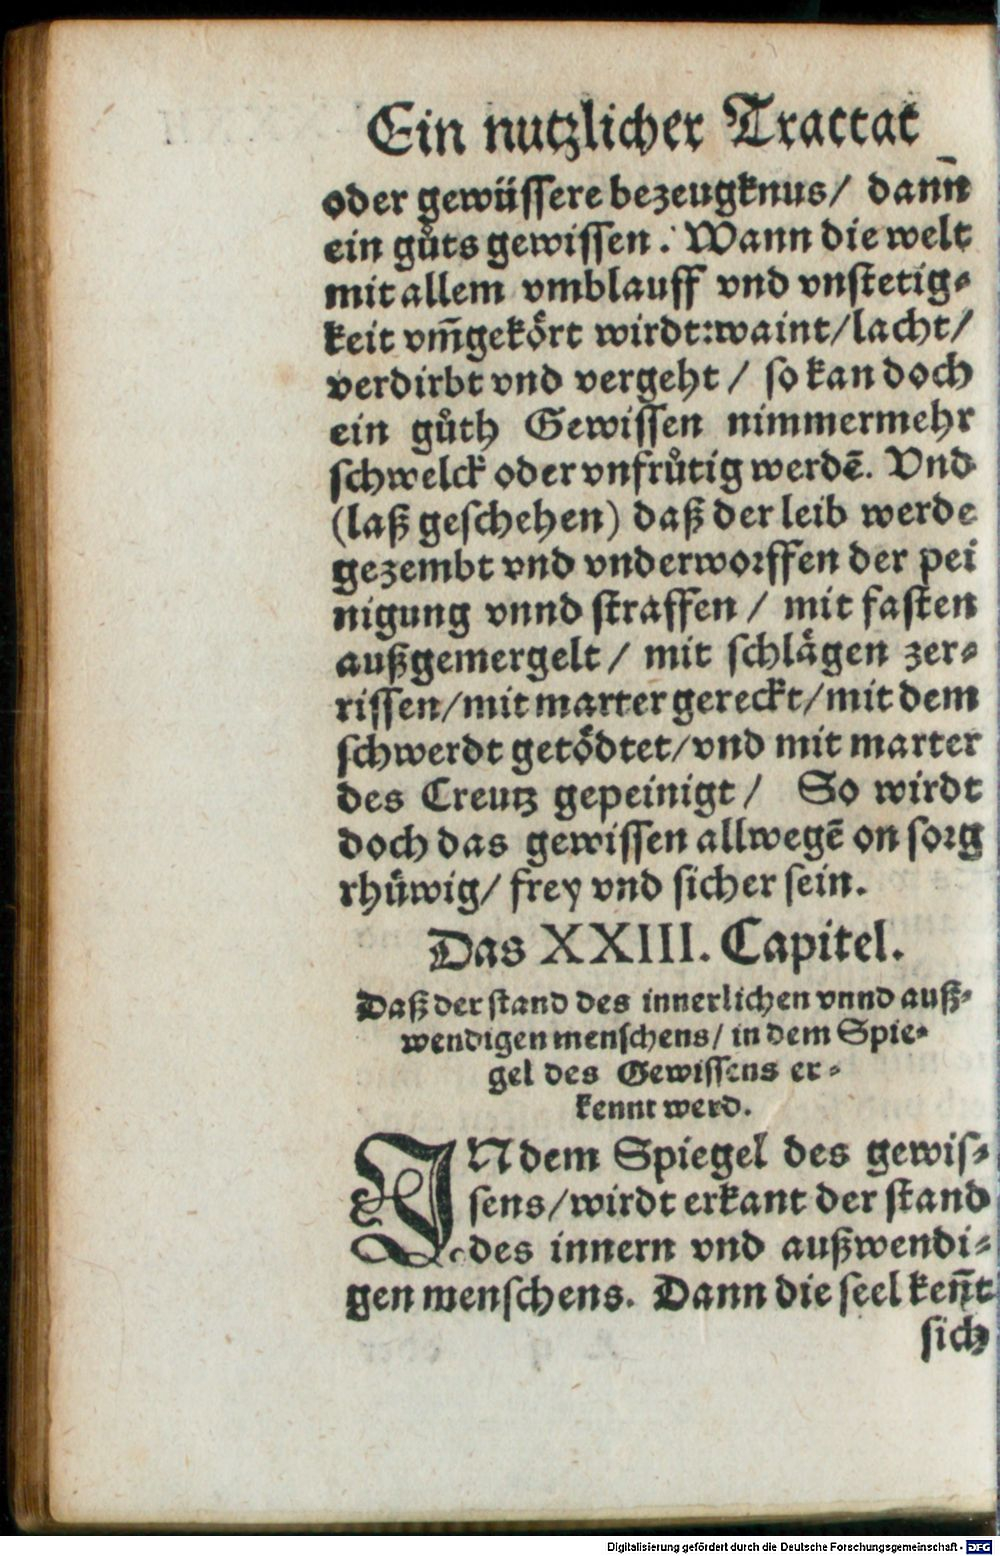 Ein nutzlicher Tractat
oder gewüssere bezeugknus/ dann̄
ein gůts gewissen. Wann die welt
mit allem vmblauff vnd vnstetig-
keit vm̄gekoͤrt wirdt:waint/lacht/
verdirbt vnd vergeht/ so kan doch
ein gůth Gewissen nimmermehr
schwelck oder vnfrůtig werdē. Vnd
(laß geschehen) daß der leib werde
gezembt vnd vnderworffen der pei
nigung vnnd straffen/ mit fasten
außgemergelt/ mit schlaͤgen zer-
rissen/mit marter gereckt/mit dem
schwerdt getoͤdtet/vnd mit marter
des Creutz gepeinigt/ So wirdt
doch das gewissen allwegē on sorg
rhuͤwig/ frey vnd sicher sein.
Das XXIII. Capitel.
Daß der stand des innerlichen vnnd auß-
wendigen menschens/ in dem Spie-
gel des Gewissens er-
kennt werd.
IN dem Spiegel des gewis-
sens/wirdt erkant der stand
des innern vnd außwendi-
gen menschens. Dann die seel ken̄t
sich
Digitalisierung gefördert durch die Deutsche Forschungsgemeinschaft - DFG